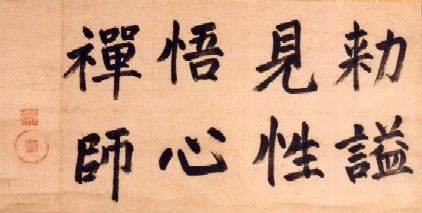 勅謚
見性
悟心
禪師